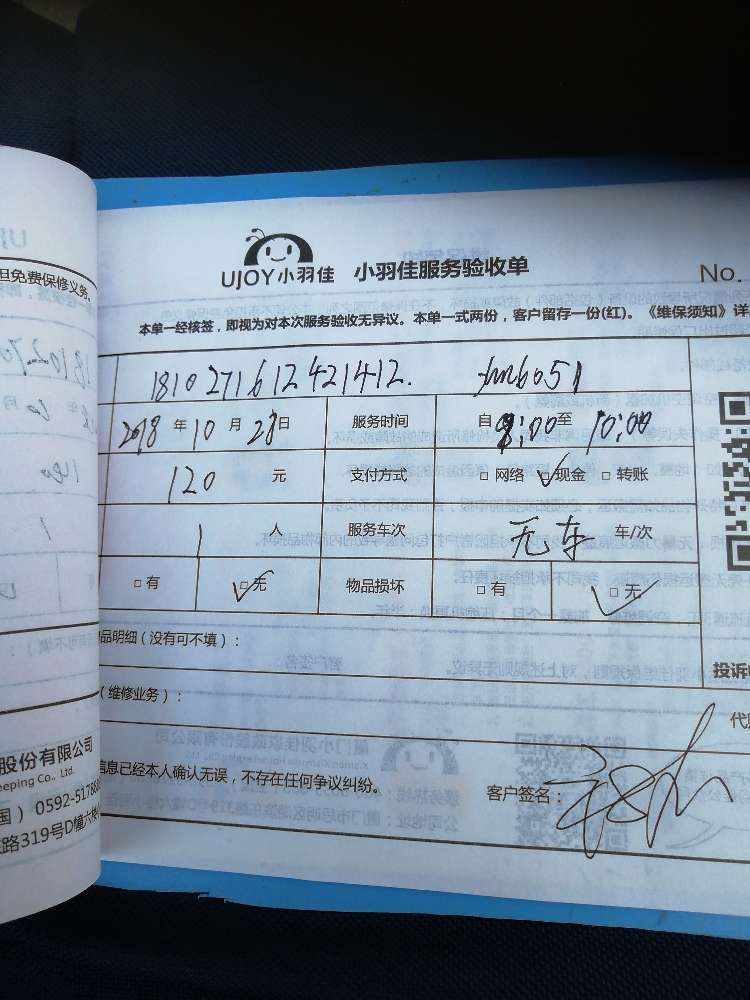 但免费保修义务。
UJOY小羽佳 小羽佳服务验收单
No.
本单一经核签，即视为对本次服务验收无异议。本单一式两份，客户留存一份(红)。《维保须知》详
1810271612421412.
2018 年 10 月 28 日 服务时间 自 8:00 至 10:00
120 元 支付方式 □ 网络 □ 现金 □ 转账
1 人 服务车次 无车 车/次
□ 有 □ 无 物品损坏 □ 有 □ 无
品明细（没有可不填）：
投诉
（维修业务）：
股份有限公司
eeping Co., Ltd.
信息已经本人确认无误，不存在任何争议纠纷。
客户签名：
国） 0592-5178
路319号D幢六楼